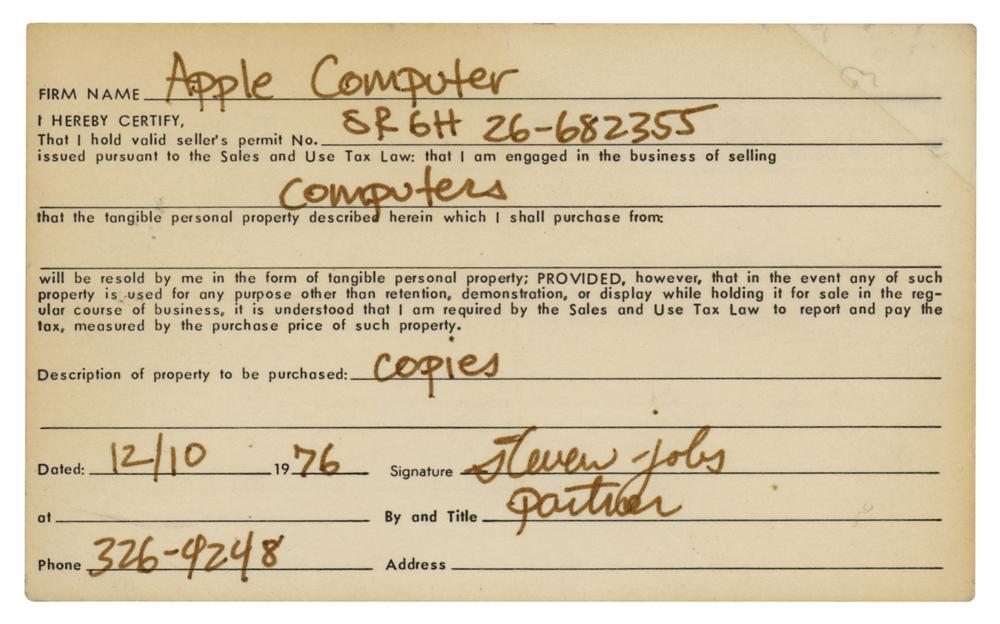 FIRM NAME Apple Computer
I HEREBY CERTIFY,
That I hold valid seller's permit No. SR GH 26-682355
issued pursuant to the Sales and Use Tax Law: that I am engaged in the business of selling
Computers
that the tangible personal property described herein which I shall purchase from:
will be resold by me in the form of tangible personal property; PROVIDED, however, that in the event any of such
property is used for any purpose other than retention, demonstration, or display while holding it for sale in the reg-
ular course of business, it is understood that I am required by the Sales and Use Tax Law to report and pay the
tax, measured by the purchase price of such property.
Description of property to be purchased: copies
Dated: 12/10 1976 Signature steven jobs
at By and Title partner
Phone 326-4248 Address